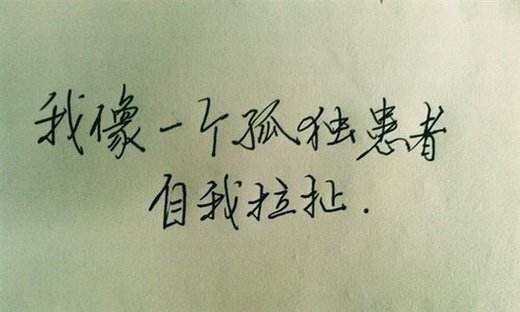 我像一个孤独患者
自我拉扯.